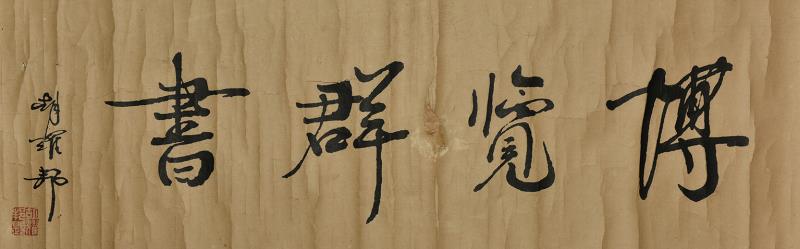 博覽群書
胡耀邦